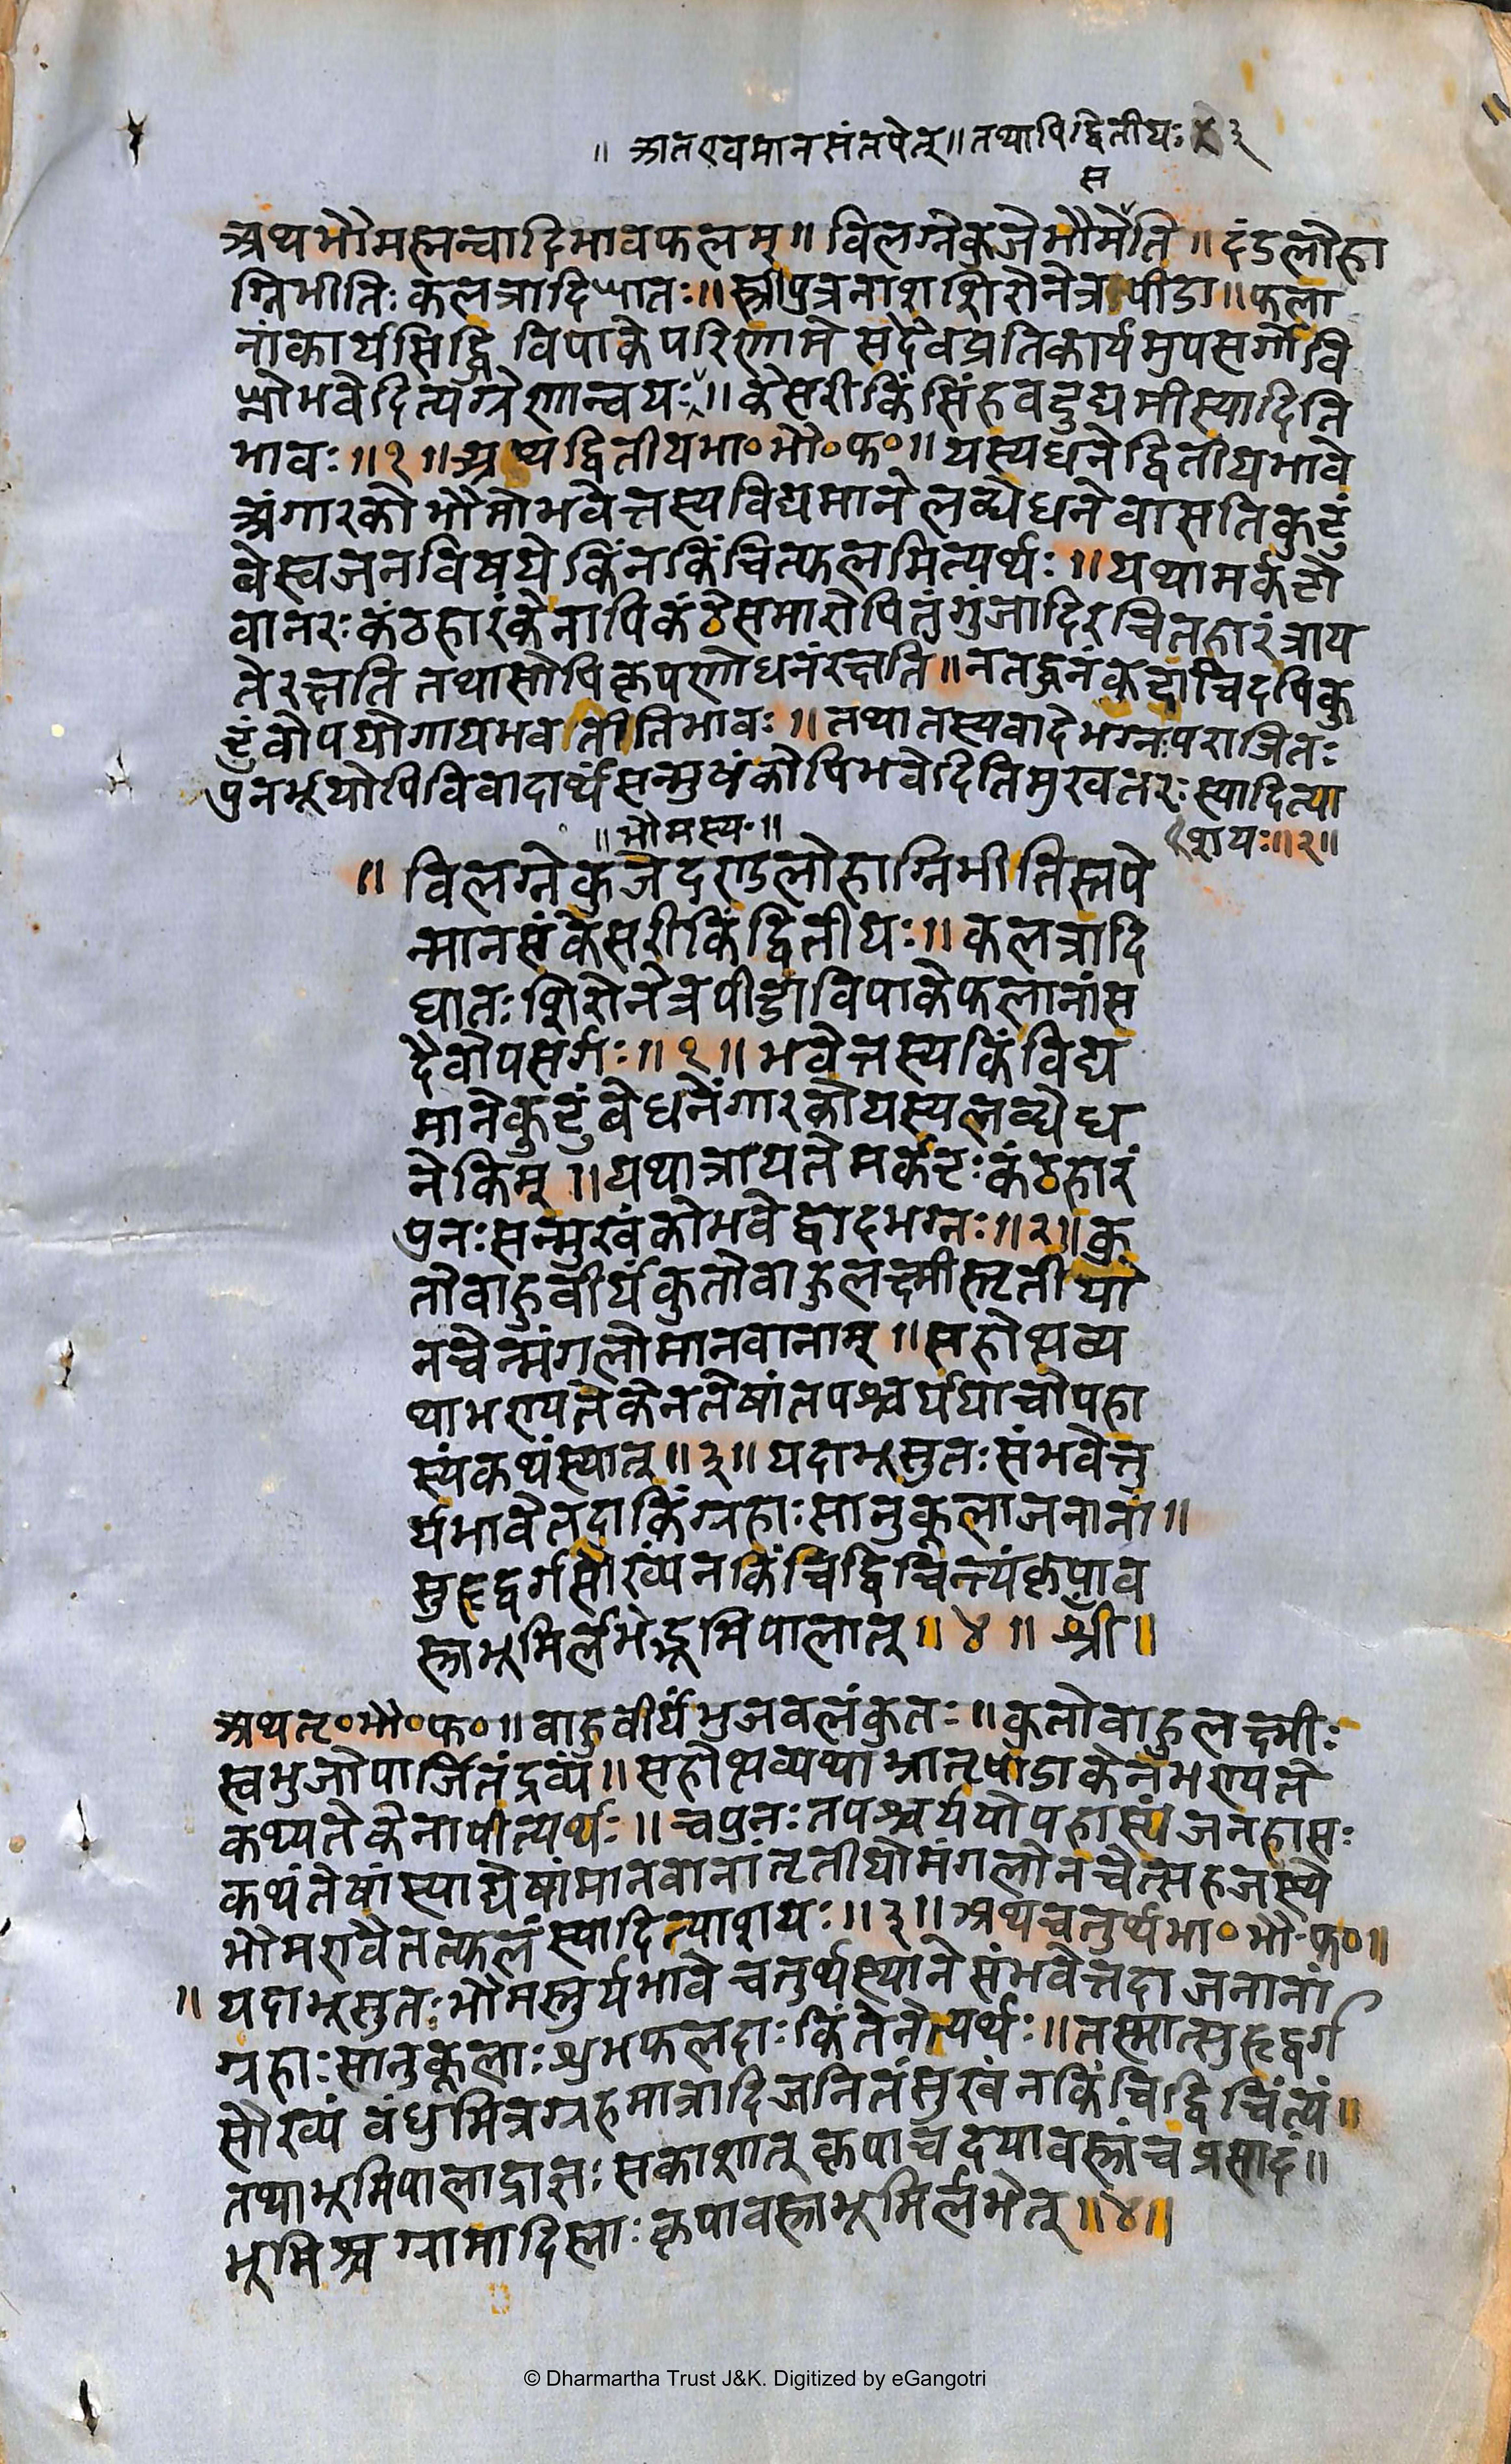 ॥ अत एवमानसंतपेत् ॥ तथापि द्वितीयः ३
स
अथ भौमस्तन्वादिभावफलम् ॥ विलग्नेकुजेभौमेति ॥ दंडलोहा
ग्निभीतिः कलत्रादिघातः ॥ स्त्रीपुत्रनाशशिरोनेत्रपीडा ॥ फला
नांकार्यसिद्धि विपाकेपरिणामे सदैवप्रतिकार्यमुपसर्गोवि
घ्नोभवेदित्यग्रेणान्वयः ॥ केसरीकिंसिंहवदुद्यमीस्यादिति
भावः ॥ १ ॥ अथ द्वितीयभा॰ भौ॰ फ॰ ॥ यस्यधनेद्वितीयभावे
अंगारकोभौमोभवेत्तस्यविद्यमानेलब्धेधनेवासतिकुटुं
बेस्वजनविषयेकिंनकिंचित्फलमित्यर्थः ॥ यथामर्कटो
वानरःकंठहारंकेनापिकंठेसमारोपितंगुंजादिरचितहारंत्राय
तेरक्षतितथासोपिकृपणोधनंरक्षति ॥ नतद्धनंकदाचिदपिकु
टुंबोपयोगायभवतीतिभावः ॥ तथातस्यवादेभग्नःपराजितः
पुनर्भूयोपिविवादार्थंसन्मुखंकोपिभवेदितिमुखतरःस्यादित्या
शयः ॥ २ ॥
॥ भौमस्य ॥
॥ विलग्नेकुजेदण्डलोहाग्निभीतिस्तपे
न्मानसंकेसरीकिंद्वितीयः ॥ कलत्रादि
घातःशिरोनेत्रपीडाविपाकेफलानांस
दैवोपसर्गः ॥ १ ॥ भवेत्तस्यकिंविद्य
मानेकुटुंबेधनेंगारकोयस्यलब्धेध
नेकिम् ॥ यथात्रायतेमर्कटःकंठहारं
पुनःसन्मुखंकोभवेद्वादभग्नः ॥ २ ॥ कु
तोबाहुवीर्यंकुतोबाहुलक्ष्मीस्तृतीयो
नचेन्मंगलोमानवानाम् ॥ सहोत्थव्य
थाभण्यतेकेनतेषांतपश्चर्ययाचोपहा
स्यंकथंस्यात् ॥ ३ ॥ यदाभूसुतःसंभवेत्तु
र्यभावेतदाकिंग्रहाःसानुकूलाजनानां ॥
सुहृद्वर्गसौख्यंनकिंचिद्विचिन्त्यंकृपाव
स्त्रभूमिर्लभेद्भूमिपालात् ॥ ४ ॥ श्री ॥
अथतृ॰ भौ॰ फ॰ ॥ बाहुवीर्यंभुजबलंकुतः ॥ कुतोबाहुलक्ष्मीः
स्वभुजोपार्जितंद्रव्यं ॥ सहोत्थव्यथाभ्रातृपीडाकेनभण्यते
कथ्यतेकेनापीत्यर्थः ॥ चपुनःतपश्चर्ययोपहास्यंजनहासः
कथंतेषांस्याद्येषांमानवानांतृतीयोमंगलोनचेत्सहजस्थे
भौमएवैतत्फलंस्यादित्याशयः ॥ ३ ॥ अथचतुर्थभा॰ भौ॰ फ॰ ॥
॥ यदाभूसुतःभौमस्तुर्यभावेचतुर्थस्थानेसंभवेत्तदाजनानां
ग्रहाःसानुकूलाःशुभफलदाःकिंतेनेत्यर्थः ॥ तस्मात्सुहृद्वर्ग
सौख्यं बंधुमित्रग्रहमात्रादिजनितंसुखंनकिंचिद्विचिंत्यं ॥
तथाभूमिपालाद्राज्ञःसकाशात् कृपाचदयावस्त्रंचप्रसादं ॥
भूमिश्चग्रामादिस्ताःकृपावस्त्रभूमिर्लभेत् ॥ ४ ॥
© Dharmartha Trust J&K. Digitized by eGangotri